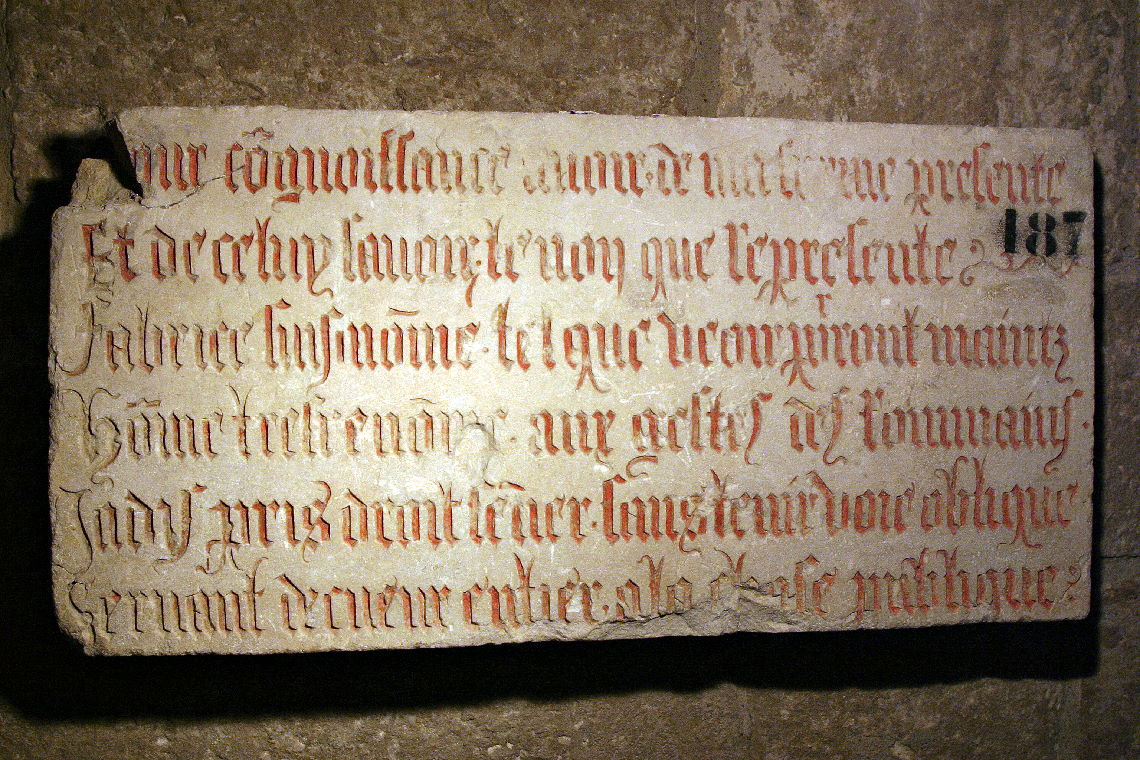 our cõgnoissance auoir de maistre presente
Et de celuy sauoir le nom que represente 187
Fabrice surnõme tel que vcoir pront maintz
Hõme tres renõme aux gestes des Rommains
Jadys pris droit sẽtier sans tenir voie oblique
Seruãt de cueur entier a la chose publique